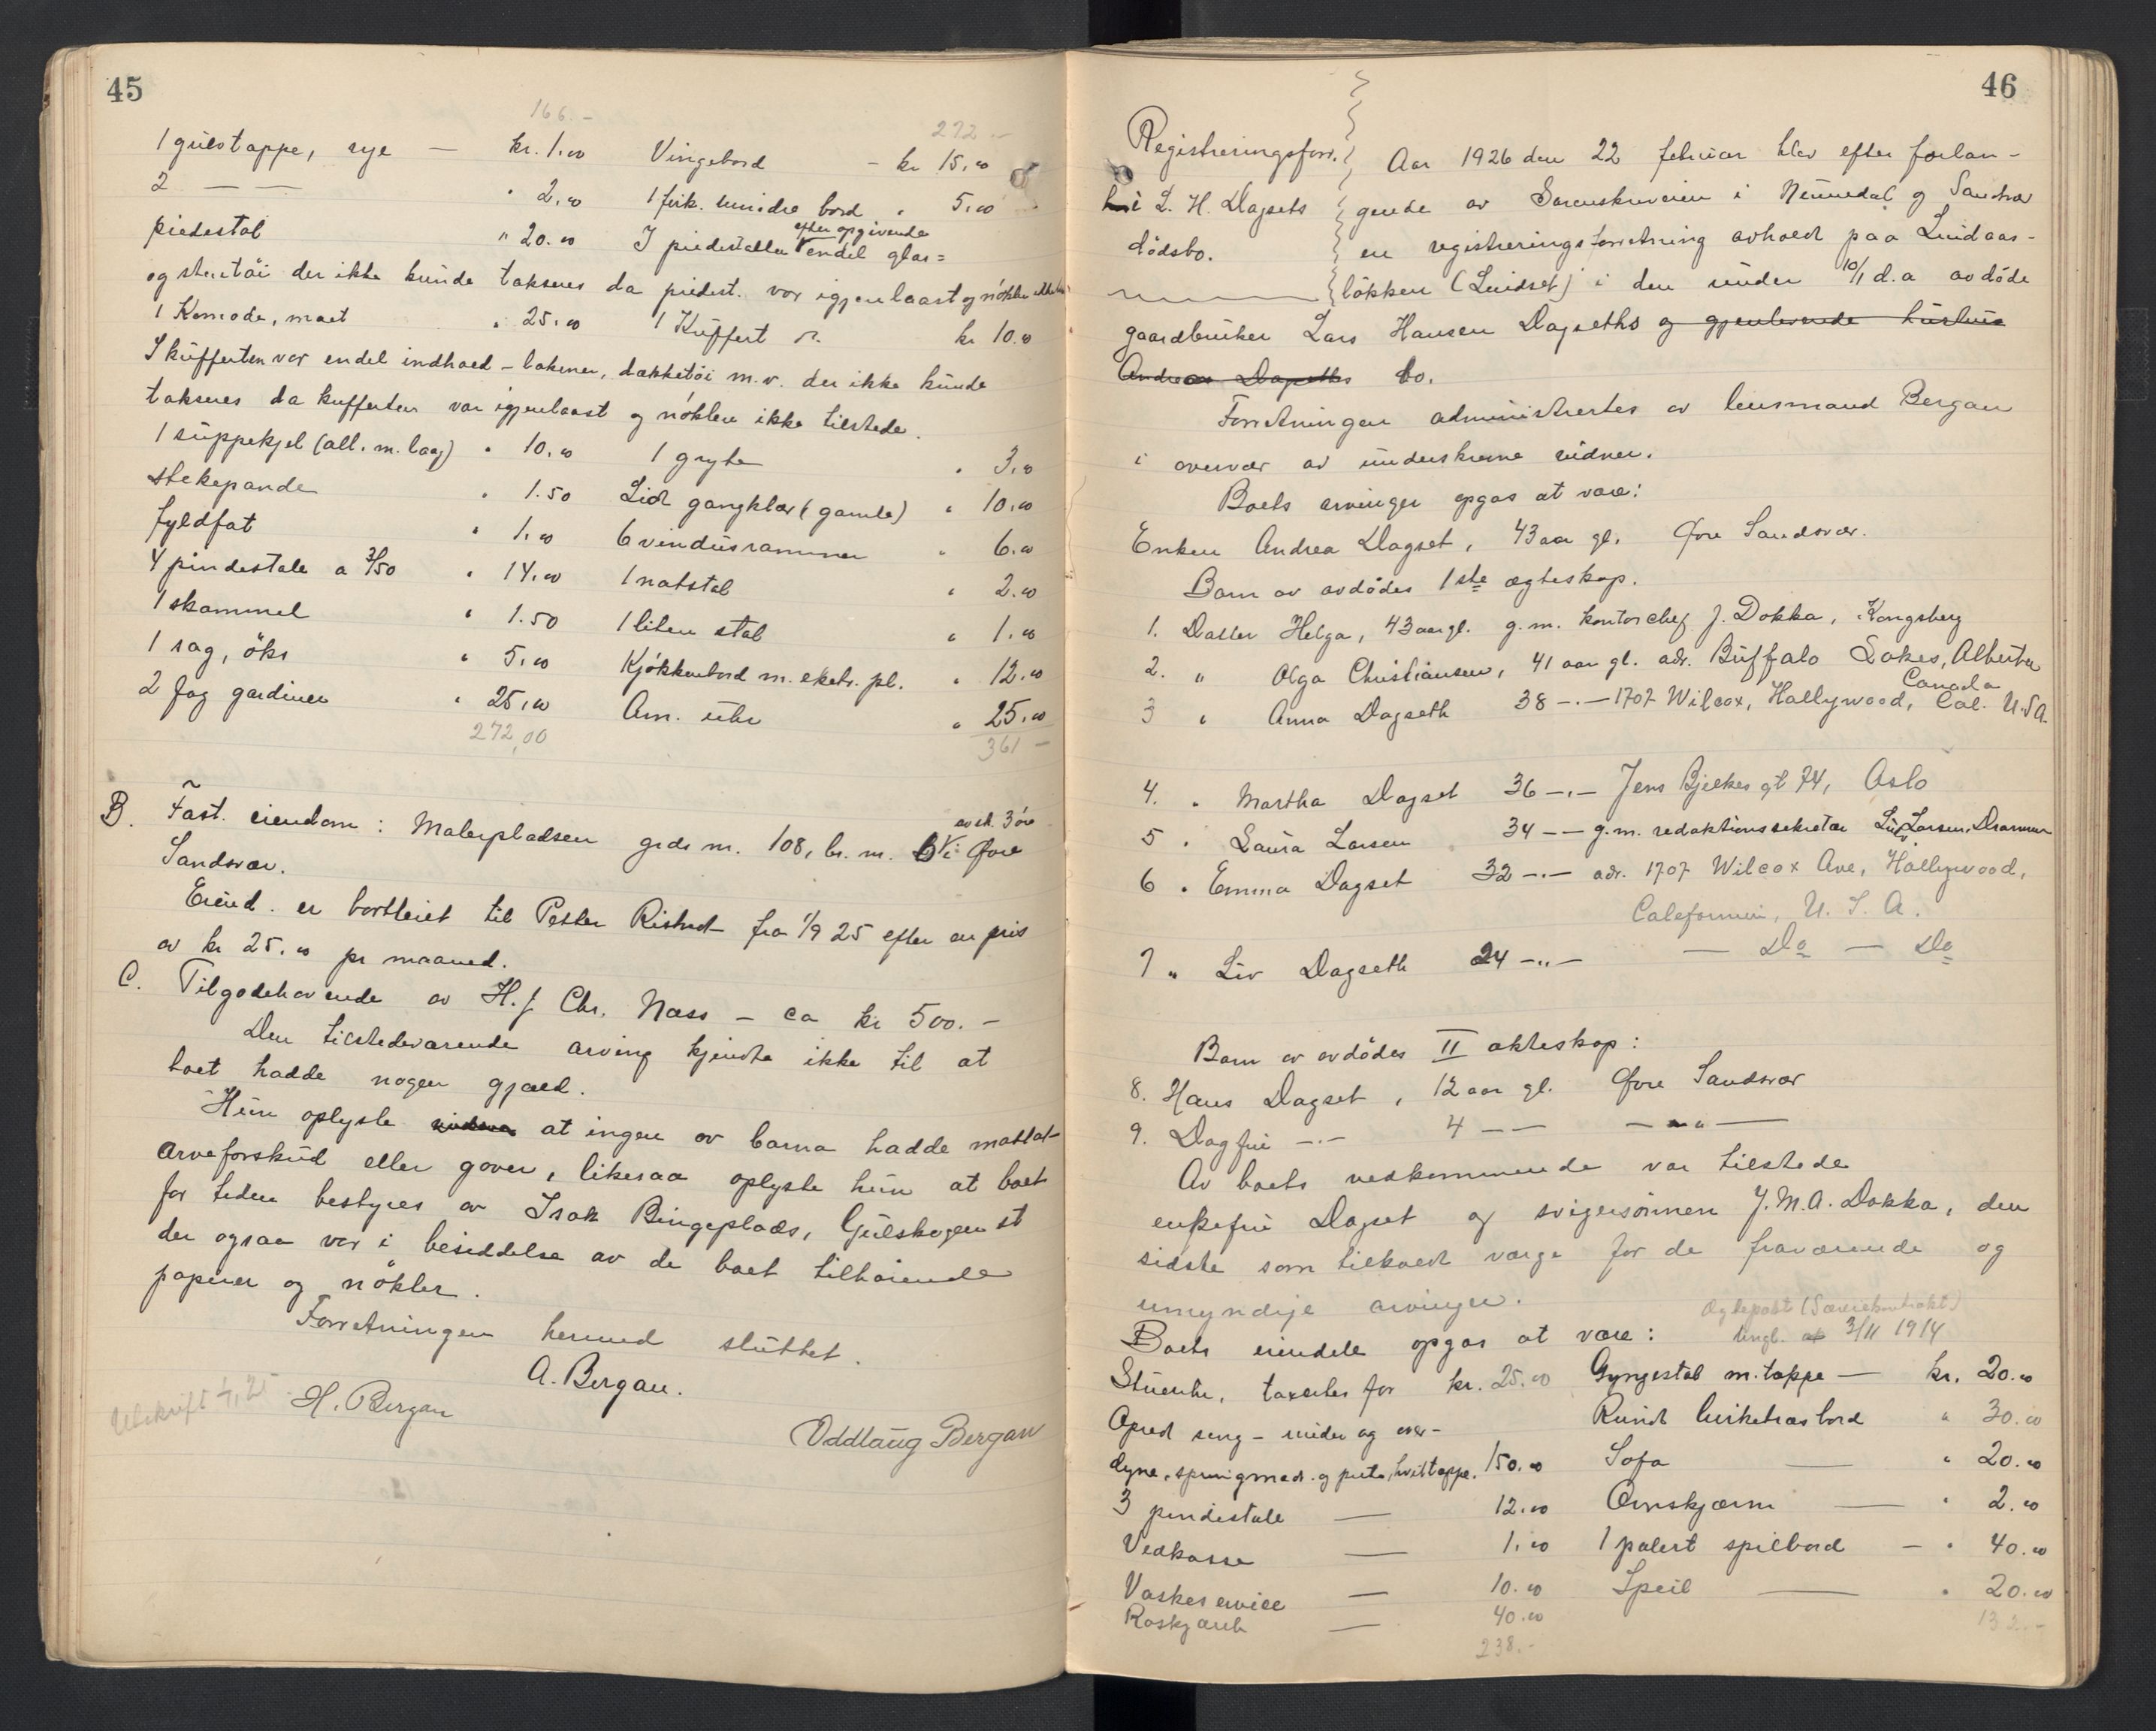 45
166.- 272.-
1 gulvtæppe, rye — kr. 1.00 Vingebord - kr 15.00
2 — — " 2.00 1 firk. mindre bord " 5.00
piedestal " 20.00 I piedestallen efter opgivende endel glas=
og stentöi der ikke kunde takseres da piedest. var igjenlaast og nöklen ikke
1 Komode, malt " 25.00 1 Kuffert kr 10.00
I kufferten var endel indhold - lakener, dækketöi m.v. der ikke kunde
takseres da kufferten var igjenlaast og nöklen ikke tilstede.
1 suppekjel (all. m. laag) " 10.00 1 gryte " 3.00
stekepande " 1.50 Lidt gangklær (gamle) " 10.00
fyldfat " 1.00 6 vindusrammer " 6.00
4 pindestole a 3/50 " 14.00 1 natstol " 2.00
1 skammel " 1.50 1 liten stol " 1.00
1 sag, öks " 5.00 Kjökkenbord m. ekstr. pl. " 12.00
2 fag gardiner " 25.00 Am. uhr " 25.00
272,00 361 -
B. Fast. eiendom: Malerpladsen grds nr. 108, br. nr. 6 av sk. 3 öre i Øvre
Sandsvær.
Eiend. er bortleiet til Petter Ristvedt fra 1/9 25 efter en pris
av kr 25.00 pr maaned.
C. Tilgodehavende av H.f Chr. Næss - ca kr 500.-
Den tilstedeværende arving kjendte ikke til at
boet hadde nogen gjæld.
Hun oplyste at ingen av barna hadde mottat
arveforskud eller gaver, likesaa oplyste hun at boet
for tiden bestyres av Isak Bingeplads, Gulskogen st
der ogsaa var i besiddelse av de boet tilhörende
papirer og nökler.
Forretningen hermed sluttet.
A. Bergan.
Utskrift H. Bergan
Oddlaug Bergan
46
Registreringsforr.
i L. H. Dagsets
dödsbo.
Aar 1926 den 22 februar blev efter forlan-
gende av Sorenskriveren i Numedal og Sandsvær
en registreringsforretning avholdt paa Lindaas-
lökken (Lindset) i den under 10/1 d.a avdöde
gaardbruker Lars Hansen Dagseths og gjenlevende hustru
Andreas Dagseths bo.
Forretningen administrertes av lensmand Bergan
i overvær av underskrevne vidner.
Boets arvinger opgas at være:
Enken Andrea Dagset, 43 aar gl. Øvre Sandsvær.
Barn av avdödes 1ste ægteskap.
1. Datter Helga, 43 aar gl. g.m. kontorchef J. Dokka, Kongsberg
2. " Olga Christiansen, 41 aar gl. adr. Buffalo Lakes, Alberta
Canada
3 " Anna Dagseth 38 -.- 1707 Wilcox, Hallywood, Cal. U.S.A.
4. " Martha Dagset 36 -.- Jens Bjelkes gt 74, Oslo
5 " Laura Larsen 34 - - g.m. redaktionssekretær Larsen, Drammen
6 " Emma Dagset 32 -.- adr. 1707 Wilcox Ave, Hollywood,
Caleformien, U. S. A.
7 " Liv Dagseth 24 -"- — Do — Do
Barn av avdödes II ækteskap:
8. Hans Dagset, 12 aar gl. Øvre Sandsvær
9. Dagfin -.- 4 - - — " —
Av boets vedkommende var tilstede
enkefru Dagset og svigersönnen J. M. A. Dokka, den
sidste som tilkaldt værge for de fraværende og
umyndige arvinger.
Ægtepakt (Særeiekontrakt)
tingl. 3/11 1914
Boets eiendele opgas at være:
Stueuhr, taxertes for kr. 25.00 Gyngestol m. tæppe — kr. 20.00
Opredt seng - under og over- Rundt birketræs bord " 30.00
dyne, springmadr. og pute, hvittæppe. 150.00 Sofa — " 20.00
3 pindestole — 12.00 Ovnskjærm — " 2.00
Vedkasse — 1.00 1 polert spilbord - " 40.00
Vaskeservice — 10.00 Speil — " 20.00
Roskjærult — 40.00 132.-
238.-